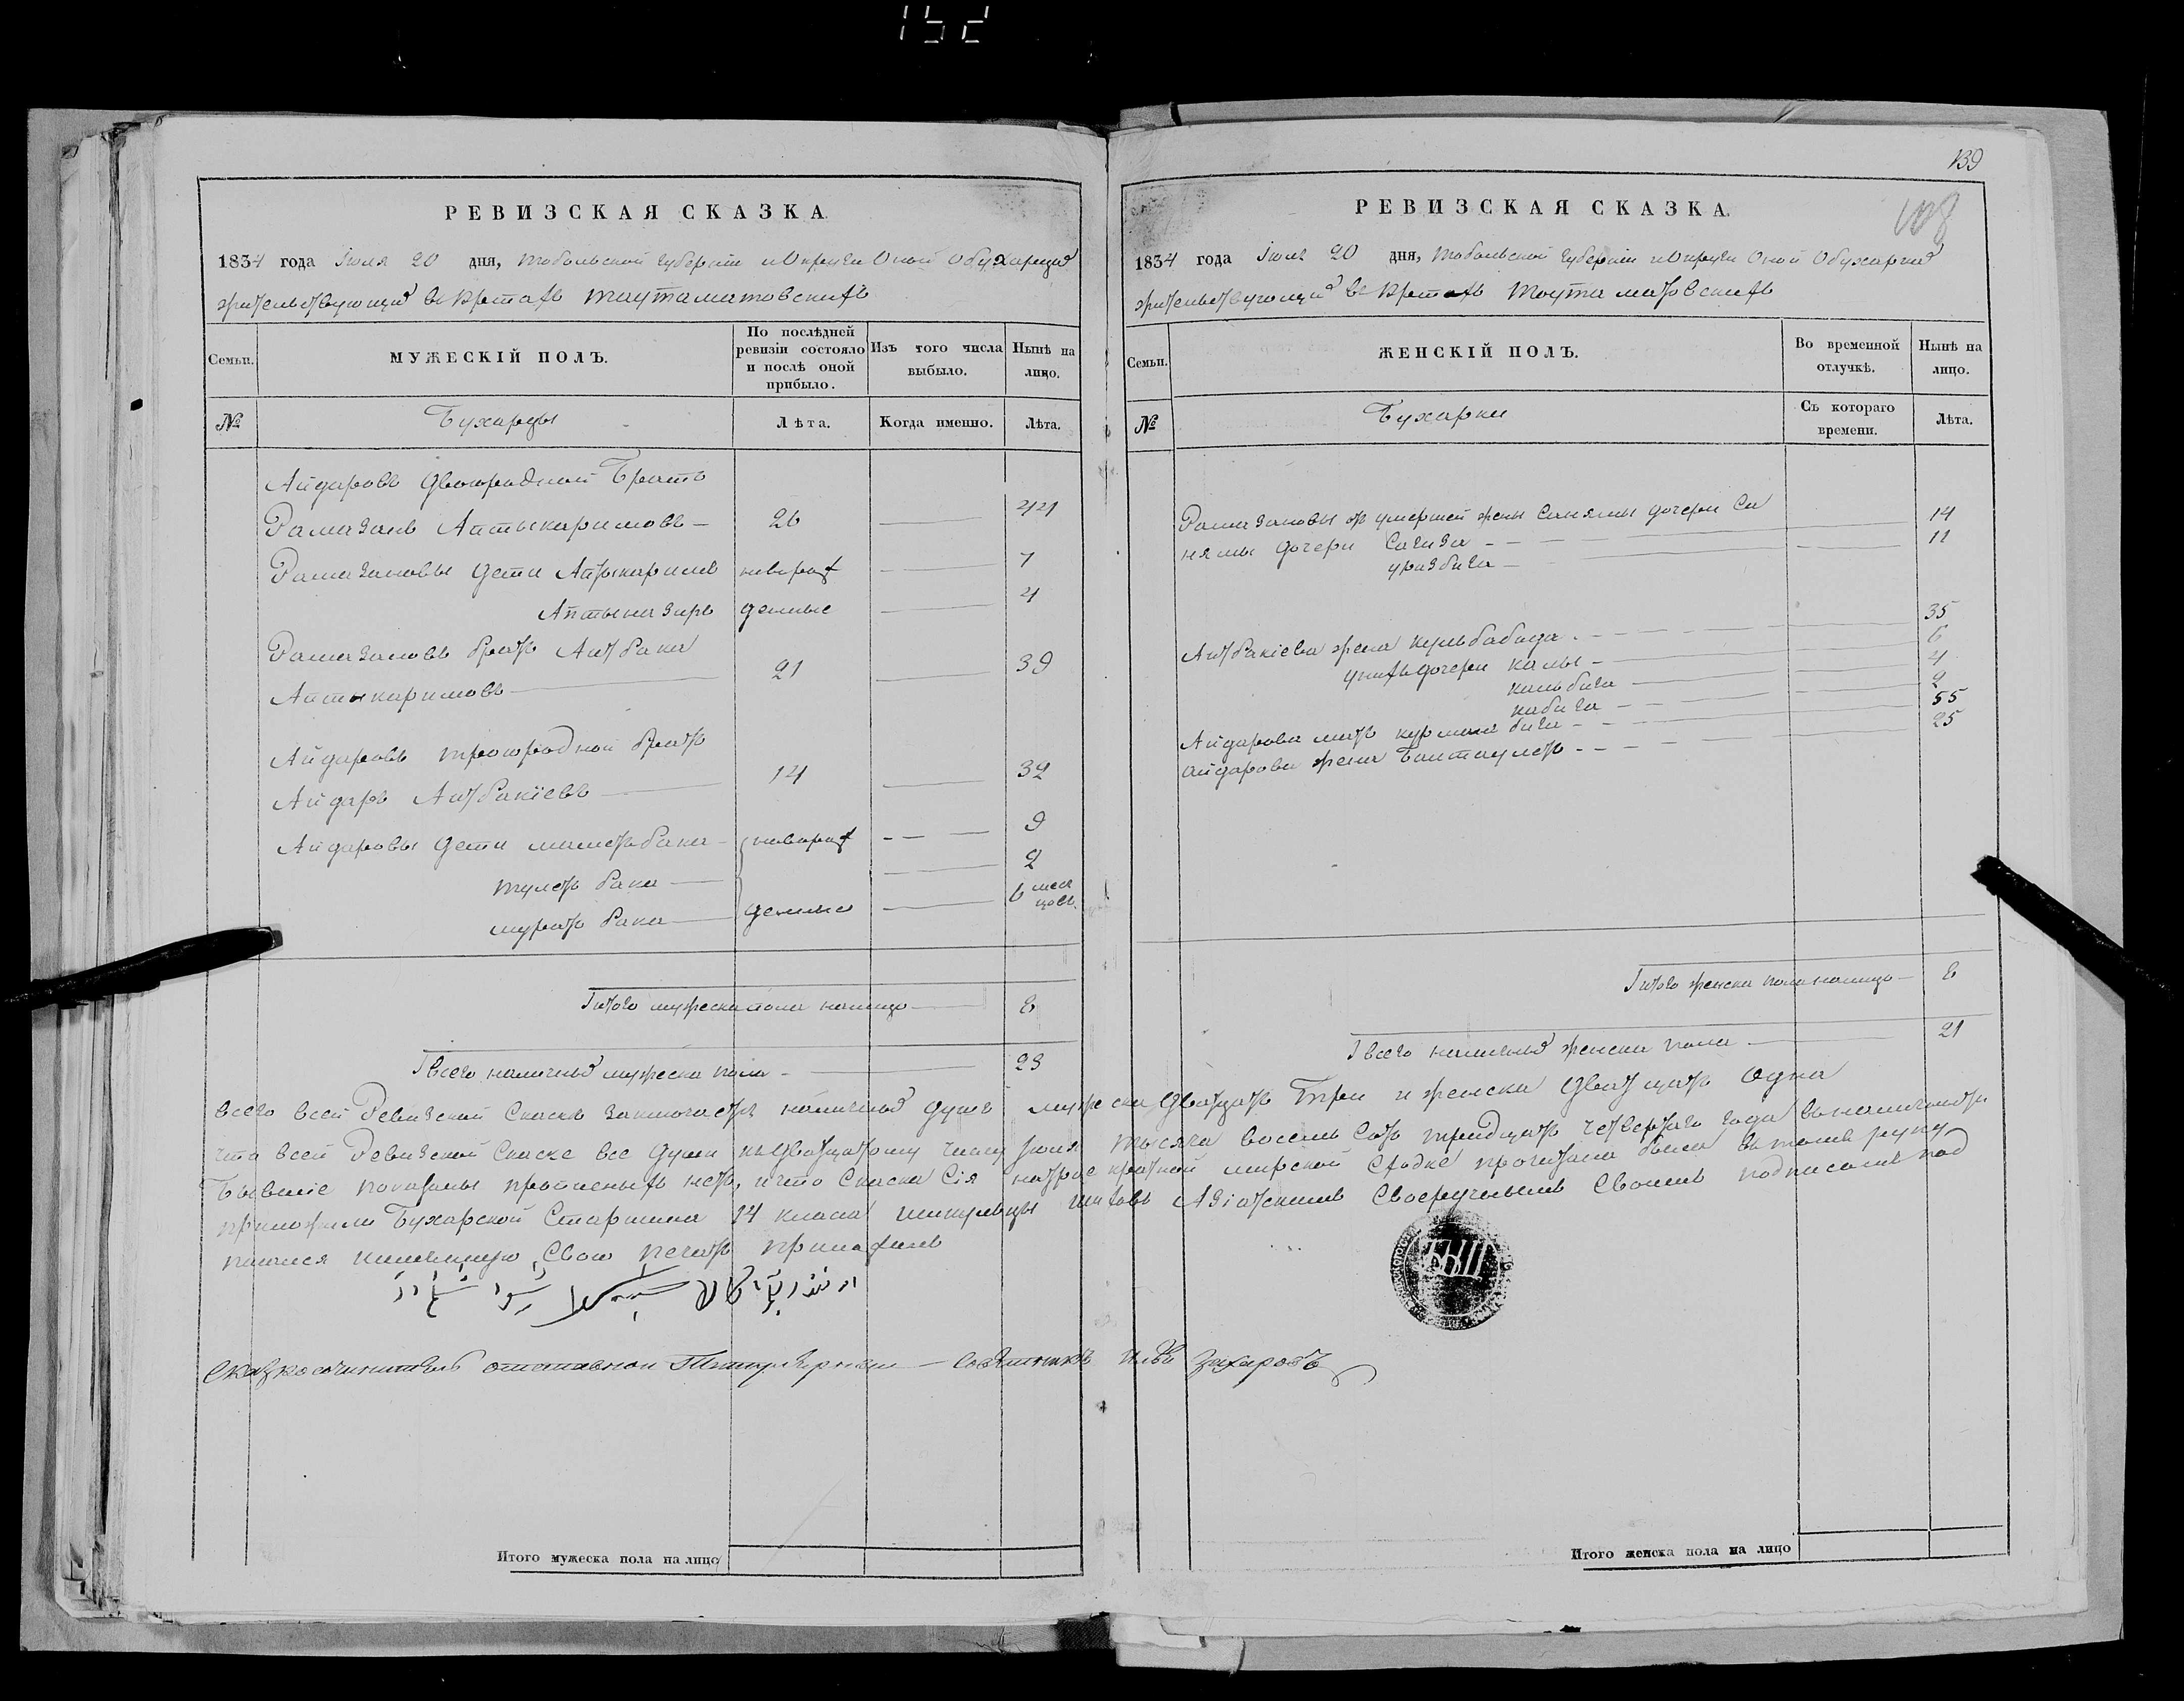 152
РЕВИЗСКАЯ СКАЗКА
1834 года Июля 20 дня, Тобольской губернии и Округи Оной О бухарцахъ
жительствующихъ въ юртахъ Таутаматовскихъ
Семьи.
МУЖЕСКІЙ ПОЛЪ.
По послѣдней ревизіи состояло и послѣ оной прибыло.
Изъ того числа выбыло.
Нынѣ на лицо.
№
Бухарцы
Лѣта.
Когда именно.
Лѣта.
Айдаровъ двоюродной Братъ
Рамазанъ Аптыкаримовъ — 26 44
Рамазановы дети новорож 7
Аптыназиръ денные 4
Рамазановъ братъ Аитбаки
Аптыкаримовъ 21 39
Айдаровъ троюродной братъ
Айдаръ Аитбакіевъ 14 32
Айдаровы дети маметьбаки новорож 9
тулетьбаки 2
муратьбаки денные 6 меся цовъ
Итого мужеска пола налицо 8
Ивсего наличныхъ мужеска пола 23
139
108
РЕВИЗСКАЯ СКАЗКА.
1834 года Июля 20 дня, Тобольской губерніи и Округи Оной О бухарцахъ
жительствующихъ въ юртахъ Таутаматовскихъ
Семьи.
ЖЕНСКІЙ ПОЛЪ.
Во временной отлучкѣ.
Нынѣ на лицо.
№
Бухарки
Съ котораго времени.
Лѣта.
Рамазановы умершей жены Санямы дочери Са 14
нямы дочери 11
уразбига
Аитбакіева жена кульбабида 35
унихъ дочери калы 6
кальбига 4
кабига 2
Айдарова мать курманбига 55
Айдарова жена 25
Итого женска пола налицо 8
Ивсего наличныхъ женска пола 21
всего всей Ревизской Скаске заключается наличныхъ душъ мужеска Дватцать Три и женска Дватцать Одна
Что всей Ревизской Скаске все души къ дватцатому числу Июля тысяча восемь сотъ тридцать четвертаго года въ наличности
Бывшіе показаны прописныхъ нетъ, и что Скаска Сія на трое кратной мирской Сходке прочитана была въ томъ руку
приложили Бухарской Старшина 14 класа Шиховъ Азіатскимъ Своеручнымъ Своимъ подписомъ под
писался имянную Свою печать приложилъ
Сказкосочинитель отставной — Илья Захаровъ
Итого мужеска пола на лицо
Итого женска пола на лицо